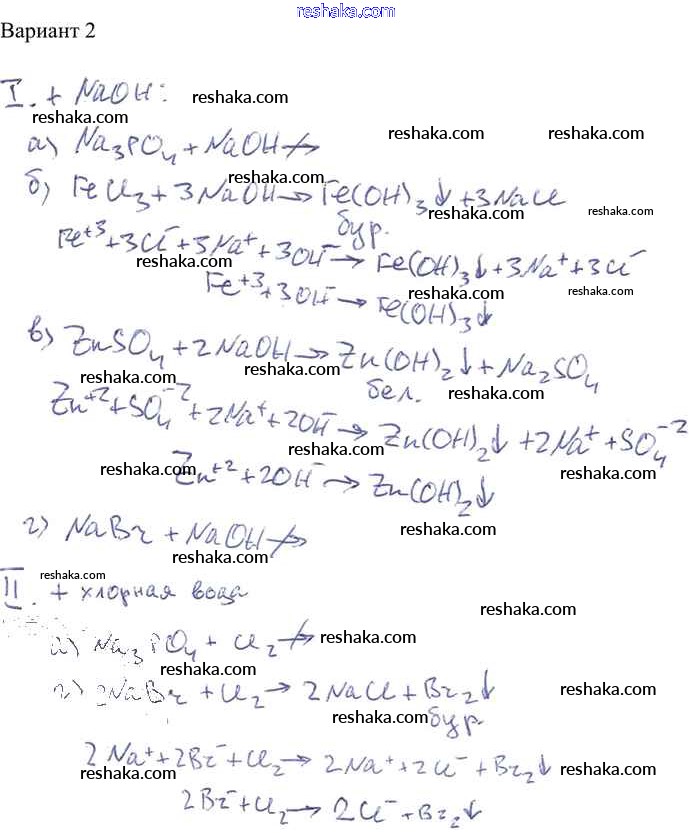 reshaka.com
Вариант 2
I. + NaOH: reshaka.com
а) Na₃PO₄ + NaOH ⇸ reshaka.com reshaka.com
reshaka.com
б) FeCl₃ + 3NaOH → Fe(OH)₃↓ + 3NaCl
бур. reshaka.com reshaka.com
Fe⁺³ + 3Cl⁻ + 3Na⁺ + 3OH⁻ → Fe(OH)₃↓ + 3Na⁺ + 3Cl⁻
reshaka.com
Fe⁺³ + 3OH⁻ → Fe(OH)₃↓
reshaka.com reshaka.com
в) ZnSO₄ + 2NaOH → Zn(OH)₂↓ + Na₂SO₄
бел.
reshaka.com reshaka.com reshaka.com
Zn⁺² + SO₄⁻² + 2Na⁺ + 2OH⁻ → Zn(OH)₂↓ + 2Na⁺ + SO₄⁻²
reshaka.com
Zn⁺² + 2OH⁻ → Zn(OH)₂↓
reshaka.com reshaka.com
г) NaBr + NaOH ⇸ reshaka.com
reshaka.com
II. reshaka.com
+ хлорная вода
reshaka.com
а) Na₃PO₄ + Cl₂ ⇸ reshaka.com
reshaka.com
г) 2NaBr + Cl₂ → 2NaCl + Br₂↓ reshaka.com
reshaka.com бур.
2Na⁺ + 2Br⁻ + Cl₂ → 2Na⁺ + 2Cl⁻ + Br₂↓
reshaka.com reshaka.com
2Br⁻ + Cl₂ → 2Cl⁻ + Br₂↓